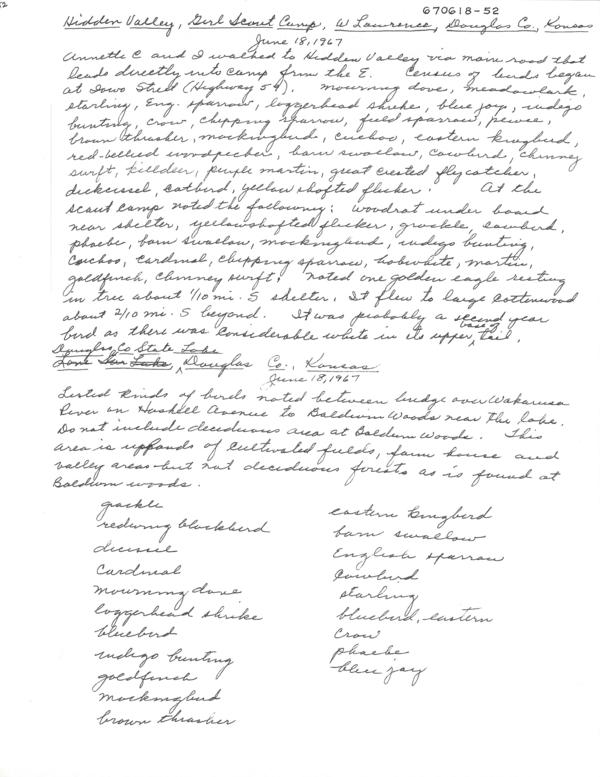 52
670618-52
Hidden Valley, Girl Scout Camp, W Lawrence, Douglas Co., Kansas
June 18, 1967
Annette C and I walked to Hidden Valley via main road that
leads directly into camp from the E. Census of birds began
at Iowa Street (Highway 59). mourning dove, meadowlark,
starling, Eng. sparrow, loggerhead shrike, blue jay, indigo
bunting, crow, chipping sparrow, field sparrow, pewee,
brown thrasher, mockingbird, cuckoo, eastern kingbird,
red-bellied woodpecker, barn swallow, cowbird, chimney
swift, killdeer, purple martin, great crested flycatcher,
dickcissel, catbird, yellow shafted flicker. At the
scout camp noted the following: woodrat under board
near shelter, yellowshafted flicker, grackle, cowbird,
phoebe, barn swallow, mockingbird, indigo bunting,
cuckoo, cardinal, chipping sparrow, bobwhite, martin,
goldfinch, chimney swift. Noted one golden eagle resting
in tree about 1/10 mi. S shelter. It flew to large cottonwood
about 2/10 mi. S beyond. It was probably a second year
bird as there was considerable white in its upper base of tail.
Douglas Co State Lake
Lone Star Lake, Douglas Co., Kansas
June 18, 1967
Listed kinds of birds noted between bridge over Wakarusa
River on Haskell Avenue to Baldwin Woods near the lake.
Do not include deciduous area at Baldwin Woods. This
area is uplands of cultivated fields, farm house and
valley areas but not deciduous forests as is found at
Baldwin woods.
grackle
redwing blackbird
dicissel
Cardinal
mourning dove
loggerhead shrike
bluebird
indigo bunting
goldfinch
mockingbird
brown thrasher
eastern kingbird
barn swallow
English sparrow
Cowbird
starling
bluebird, eastern
Crow
phoebe
blue jay